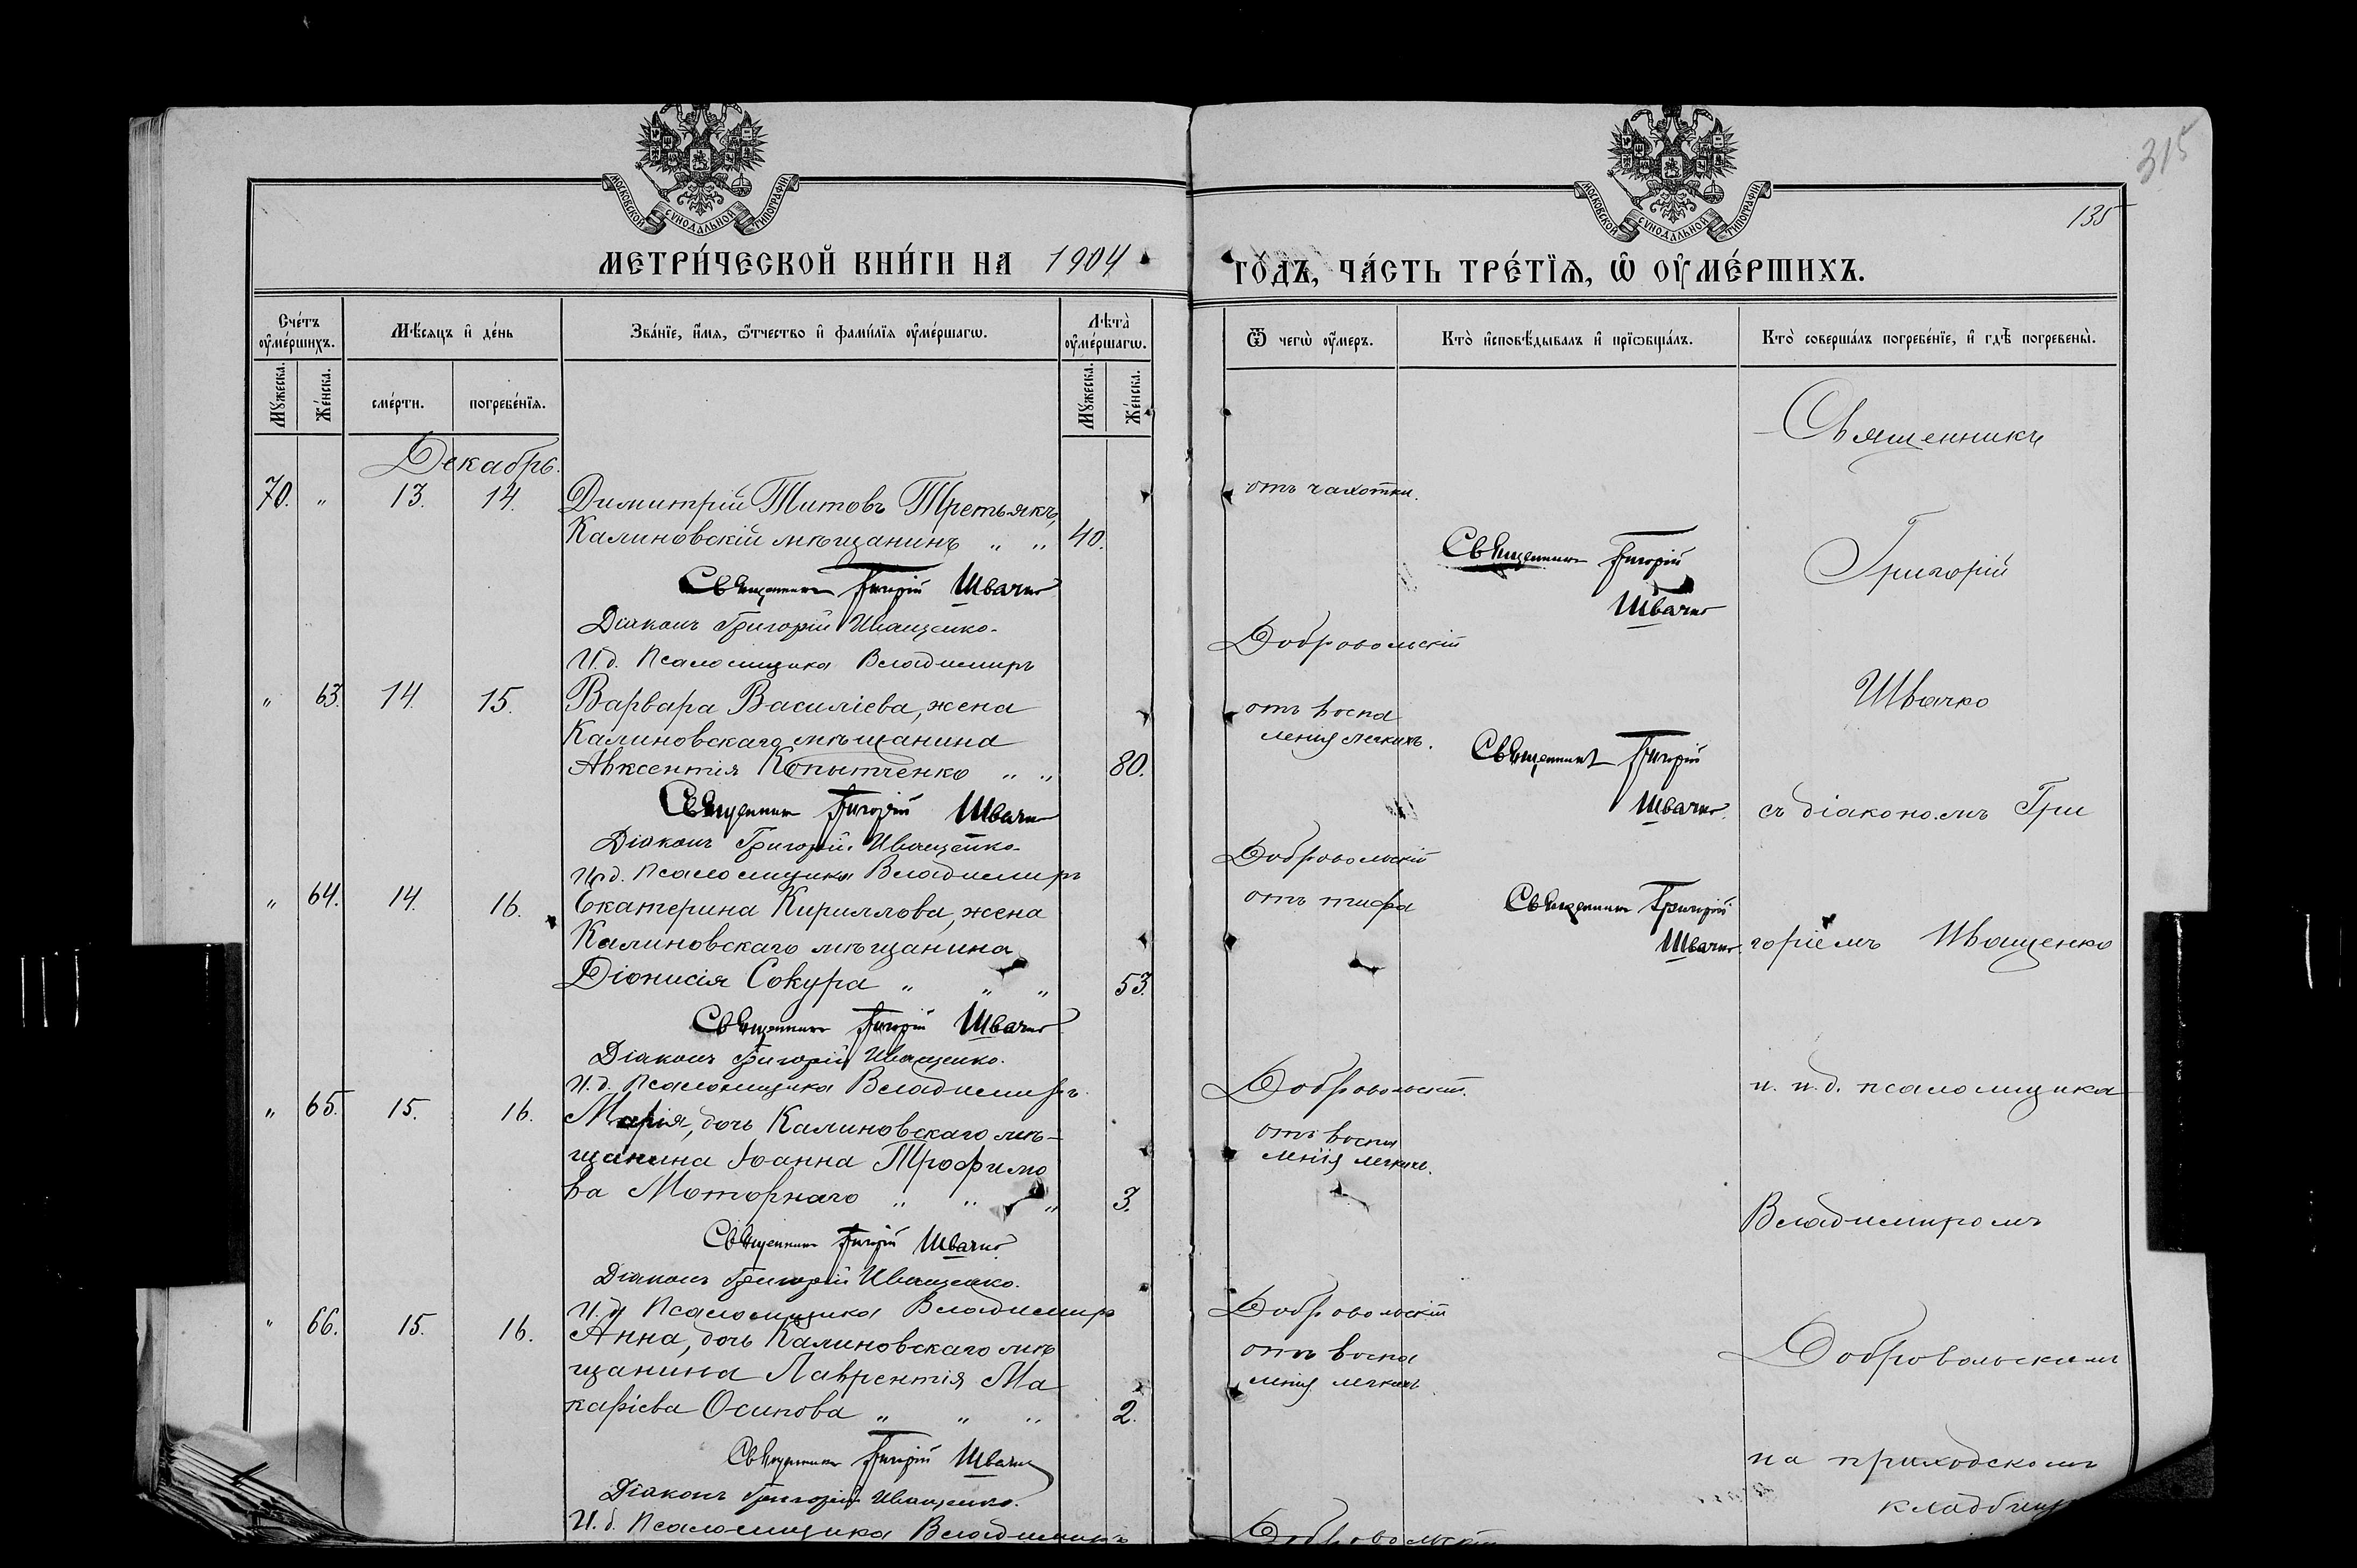 315
135
МОСКОВСКОЙ СѴНОДАЛЬНОЙ ТИПОГРАФІИ
МОСКОВСКОЙ СѴНОДАЛЬНОЙ ТИПОГРАФІИ
МЕТРИ́ЧЕСКОЙ КНИ́ГИ НА 1904
ГО́ДЪ, ЧА́СТЬ ТРЕ́ТЇѦ, Ѡ҆ ОУ҆МЕ́РШИХЪ.
Сче́тъ оу҆ме́ршихъ.
Мѣ́сяцъ и҆ де́нь
Зва́нїе, и҆́мѧ, ѻ҆́тчество и҆ фами́лїѧ оу҆ме́ршагѡ.
Лѣта̀ оу҆ме́ршагѡ.
Ѿ чегѡ̀ оу҆́меръ.
Кто̀ и҆сповѣ́дывалъ и҆ прїѡбща́лъ.
Кто̀ соверша́лъ погребе́нїе, и҆ гдѣ̀ погребены̀.
Мꙋ́жеска.
Же́нска.
сме́рти.
погребе́нїѧ.
Мꙋ́жеска.
Же́нска.
Декабрь.
70. " 13. 14. Димитрій Титовъ Третьякъ,
Калиновскій мѣщанинъ " " 40.
отъ чахотки.
Священникъ Григорій Швачко
Священникъ Григорій
Швачко
Діаконъ Григорій Иващенко.
И.д. Псаломщика Владимиръ Добровольскій
" 63. 14. 15. Варвара Василіева, жена
Калиновскаго мѣщанина
Авксентія Копытченко " " 80.
отъ воспа
ленія легкихъ.
Священникъ Григорій
Швачко
Священникъ Григорій Швачко
Діаконъ Григорій Иващенко.
И.д. Псаломщика Владимиръ Добровольскій
" 64. 14. 16. Екатерина Кириллова, жена
Калиновскаго мѣщанина
Діонисія Сокура " " " 53.
отъ тифа
Священникъ Григорій
Швачко
Священникъ Григорій Швачко
Діаконъ Григорій Иващенко.
И.д. Псаломщика Владимиръ Добровольскій.
" 65. 15. 16. Марія, дочь Калиновскаго мѣ-
щанина Іоанна Трофимо
ва Моторнаго " " " 3.
отъ воспа
ленія легкихъ.
Священникъ Григорій Швачко
Діаконъ Григорій Иващенко.
И.д. Псаломщика Владимиръ Добровольскій
" 66. 15. 16. Анна, дочь Калиновскаго мѣ
щанина Лаврентія Ма
каріева Осипова " " " 2.
отъ воспа
ленія легкихъ
Священникъ Григорій Швачко
Діаконъ Григорій Иващенко.
И.д. Псаломщика Владимиръ Добровольскій
Священникъ
Григорій
Швачко
съ діакономъ Гри
горіемъ Иващенко
и. и.д. псаломщика
Владимиромъ
Добровольскимъ
на приходскомъ